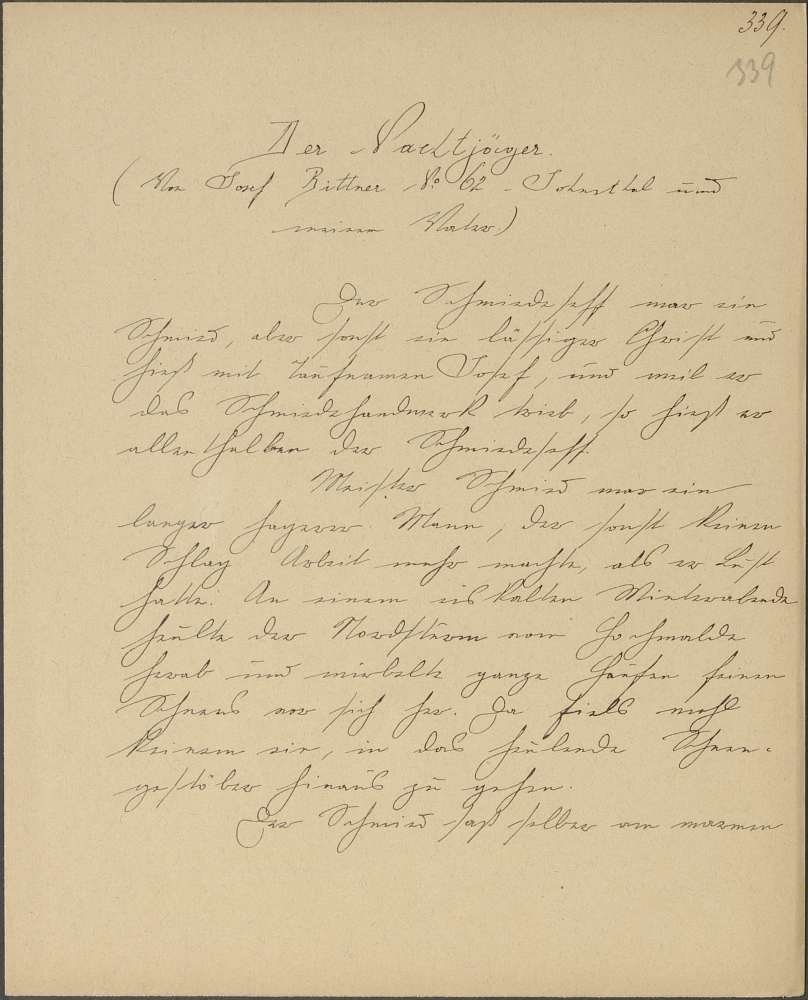 339.
339
Der Nachtjäger.
(Von Josef Bittner No 62 - Johnsthal und
meinem Vater.)
Der Schmiedeseff war ein
Schmied, aber sonst ein lässiger Christ und
hieß mit Taufnamen Josef, und weil er
das Schmiedehandwerk trieb, so hieß er
allenthalben der Schmiedeseff.
Meister Schmied war ein
langer hagerer Mann, der sonst keinen
Schlag Arbeit mehr machte, als er Lust
hatte. An einem eiskalten Winterabende
heulte der Nordsturm vom Hochwalde
herab und wirbelte ganze Haufen feinen
Schnees vor sich her. Da fiels wohl
keinem ein, in das heulende Schnee-
gestöber hinaus zu gehen.
Der Schmied saß selber am warmen